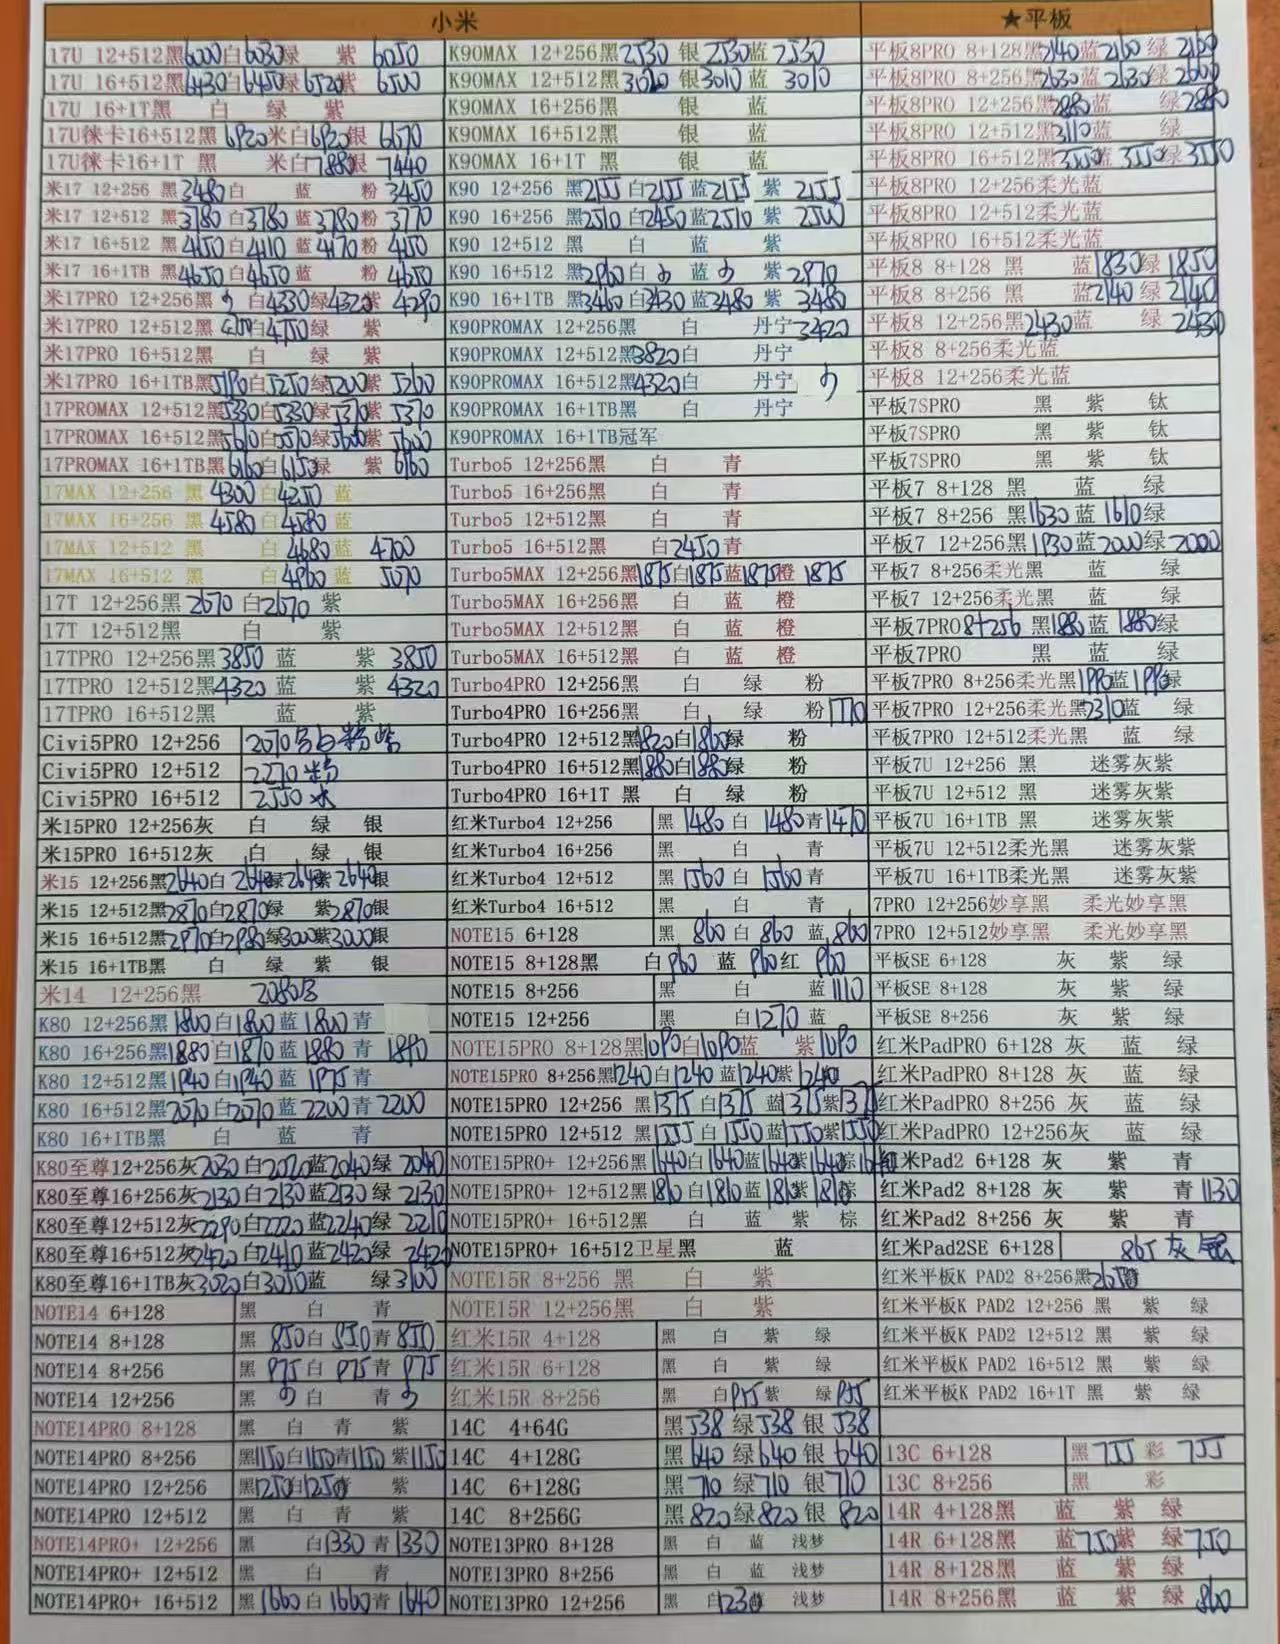 小米
★平板
17U 12+512黑6000白6030绿 紫 6050
17U 16+512黑6430白6450绿6520紫 6500
17U 16+1T黑 白 绿 紫
17U徕卡16+512黑 6920米白6920银 6670
17U徕卡16+1T 黑 米白7880银 7440
米17 12+256 黑3480白 蓝 粉3450
米17 12+512 黑3780白3780蓝3780粉 3770
米17 16+512 黑4150白4110蓝4170粉 4150
米17 16+1TB 黑4650白4650蓝 粉4650
米17PRO 12+256黑 白4330绿4320紫 4290
米17PRO 12+512黑 白4750绿 紫
米17PRO 16+512黑 白 绿 紫
米17PRO 16+1TB黑5190白5250绿5200紫 5260
17PROMAX 12+512黑5330白5330绿5370紫 5370
17PROMAX 16+512黑5610白5570绿5600紫 5600
17PROMAX 16+1TB黑6160白6150绿 紫6160
17MAX 12+256 黑 4300白4250蓝
17MAX 16+256 黑 4580白4580蓝
17MAX 12+512 黑 白4680蓝 4700
17MAX 16+512 黑 白4960蓝 5070
17T 12+256黑 2670白2670 紫
17T 12+512黑 白 紫
17TPRO 12+256黑3850 蓝 紫 3850
17TPRO 12+512黑4320 蓝 紫 4320
17TPRO 16+512黑 蓝 紫
Civi5PRO 12+256 2070
Civi5PRO 12+512 2270粉
Civi5PRO 16+512 2550
米15PRO 12+256灰 白 绿 银
米15PRO 16+512灰 白 绿 银
米15 12+256黑2640白 2640绿2640紫 2640银
米15 12+512黑2870白2870绿 紫2870银
米15 16+512黑2970白2980绿3000紫3000银
米15 16+1TB黑 白 绿 紫 银
米14 12+256黑 2080
K80 12+256黑1800白1800蓝 1800青
K80 16+256黑1880白1870蓝 1880青 1890
K80 12+512黑1940白1940蓝 1975青
K80 16+512黑2070白2070蓝 2200青 2200
K80 16+1TB黑 白 蓝 青
K80至尊12+256灰2030白2020蓝2040绿 2040
K80至尊16+256灰2130白2130蓝2130绿 2130
K80至尊12+512灰2290白2220蓝2240绿 2210
K80至尊16+512灰2420白2410蓝2420绿 2420
K80至尊16+1TB灰3020白3010蓝 绿3100
NOTE14 6+128 黑 白 青
NOTE14 8+128 黑 850白 850青850
NOTE14 8+256 黑 975白 975青 975
NOTE14 12+256 黑 白 青
NOTE14PRO 8+128 黑 白 青 紫
NOTE14PRO 8+256 黑1150白1150青1150 紫1150
NOTE14PRO 12+256 黑1250白1250青 紫
NOTE14PRO 12+512 黑 白 青 紫
NOTE14PRO+ 12+256 黑 白1330青1330
NOTE14PRO+ 12+512 黑 白 青
NOTE14PRO+ 16+512 黑1660白1660青1640
K90MAX 12+256黑2530 银2530蓝 2530
K90MAX 12+512黑3010银3010蓝 3010
K90MAX 16+256黑 银 蓝
K90MAX 16+512黑 银 蓝
K90MAX 16+1T 黑 银 蓝
K90 12+256 黑2155 白2155蓝2155 紫 2155
K90 16+256 黑2510 白2450蓝2510 紫 2500
K90 12+512 黑 白 蓝 紫
K90 16+512 黑2860白 蓝 紫2870
K90 16+1TB 黑3460白3430蓝3480 紫 3480
K90PROMAX 12+256黑 白 丹宁3420
K90PROMAX 12+512黑3820白 丹宁
K90PROMAX 16+512黑4320白 丹宁
K90PROMAX 16+1TB黑 白 丹宁
K90PROMAX 16+1TB冠军
Turbo5 12+256黑 白 青
Turbo5 16+256黑 白 青
Turbo5 12+512黑 白 青
Turbo5 16+512黑 白2450青
Turbo5MAX 12+256黑1875白1875蓝1875橙 1875
Turbo5MAX 16+256黑 白 蓝 橙
Turbo5MAX 12+512黑 白 蓝 橙
Turbo5MAX 16+512黑 白 蓝 橙
Turbo4PRO 12+256黑 白 绿 粉
Turbo4PRO 16+256黑 白 绿 粉1770
Turbo4PRO 12+512黑1820白1860绿 粉
Turbo4PRO 16+512黑1880白1880绿 粉
Turbo4PRO 16+1T 黑 白 绿 粉
红米Turbo4 12+256 黑 1480白 1480青1470
红米Turbo4 16+256 黑 白 青
红米Turbo4 12+512 黑 1560白 1560青
红米Turbo4 16+512 黑 白 青
NOTE15 6+128 黑 860白 860 蓝860
NOTE15 8+128黑 白960 蓝 960红 960
NOTE15 8+256 黑 白 蓝1110
NOTE15 12+256 黑 白1270蓝
NOTE15PRO 8+128黑1090白1090蓝 紫1090
NOTE15PRO 8+256黑1240白1240蓝1240紫1240
NOTE15PRO 12+256 黑1375白1375蓝1375紫1375
NOTE15PRO 12+512 黑1555白1550蓝1550紫1550
NOTE15PRO+ 12+256黑1640白1640蓝1640紫1640棕1640
NOTE15PRO+ 12+512黑1810白1810蓝1810紫1810棕
NOTE15PRO+ 16+512黑 白 蓝 紫 棕
NOTE15PRO+ 16+512卫星黑 蓝
NOTE15R 8+256 黑 白 紫
NOTE15R 12+256黑 白 紫
红米15R 4+128 黑 白 紫 绿
红米15R 6+128 黑 白 紫 绿
红米15R 8+256 黑 白955紫 绿955
14C 4+64G 黑538绿538银 538
14C 4+128G 黑640绿640银 640
14C 6+128G 黑710绿710 银710
14C 8+256G 黑820绿820银 820
NOTE13PRO 8+128 黑 白 蓝 浅梦
NOTE13PRO 8+256 黑 白 蓝 浅梦
NOTE13PRO 12+256 黑 白1230蓝 浅梦
平板8PRO 8+128黑2140蓝2160 绿 2160
平板8PRO 8+256黑2630蓝2630绿 2600
平板8PRO 12+256黑2880蓝 绿2880
平板8PRO 12+512黑3110蓝 绿
平板8PRO 16+512黑3550蓝3550绿3550
平板8PRO 12+256柔光蓝
平板8PRO 12+512柔光蓝
平板8PRO 16+512柔光蓝
平板8 8+128 黑 蓝1830绿1850
平板8 8+256 黑 蓝2140绿2140
平板8 12+256黑2430蓝 绿 2430
平板8 8+256柔光蓝
平板8 12+256柔光蓝
平板7SPRO 黑 紫 钛
平板7SPRO 黑 紫 钛
平板7SPRO 黑 紫 钛
平板7 8+128 黑 蓝 绿
平板7 8+256 黑1630蓝1610绿
平板7 12+256黑1930蓝2000绿2000
平板7 8+256柔光黑 蓝 绿
平板7 12+256柔光黑 蓝 绿
平板7PRO8+256 黑1880蓝 1880绿
平板7PRO 黑 蓝 绿
平板7PRO 8+256柔光黑1990蓝1990绿
平板7PRO 12+256柔光黑2310蓝 绿
平板7PRO 12+512柔光黑 蓝 绿
平板7U 12+256 黑 迷雾灰紫
平板7U 12+512 黑 迷雾灰紫
平板7U 16+1TB 黑 迷雾灰紫
平板7U 12+512柔光黑 迷雾灰紫
平板7U 16+1TB柔光黑 迷雾灰紫
7PRO 12+256妙享黑 柔光妙享黑
7PRO 12+512妙享黑 柔光妙享黑
平板SE 6+128 灰 紫 绿
平板SE 8+128 灰 紫 绿
平板SE 8+256 灰 紫 绿
红米PadPRO 6+128 灰 蓝 绿
红米PadPRO 8+128 灰 蓝 绿
红米PadPRO 8+256 灰 蓝 绿
红米PadPRO 12+256灰 蓝 绿
红米Pad2 6+128 灰 紫 青
红米Pad2 8+128 灰 紫 青1130
红米Pad2 8+256 灰 紫 青
红米Pad2SE 6+128 865灰
红米平板K PAD2 8+256黑2650
红米平板K PAD2 12+256 黑 紫 绿
红米平板K PAD2 12+512 黑 紫 绿
红米平板K PAD2 16+512 黑 紫 绿
红米平板K PAD2 16+1T 黑 紫 绿
13C 6+128 黑 755 彩 755
13C 8+256 黑 彩
14R 4+128黑 蓝 紫 绿
14R 6+128黑 蓝750紫 绿750
14R 8+128黑 蓝 紫 绿
14R 8+256黑 蓝 紫 绿 860